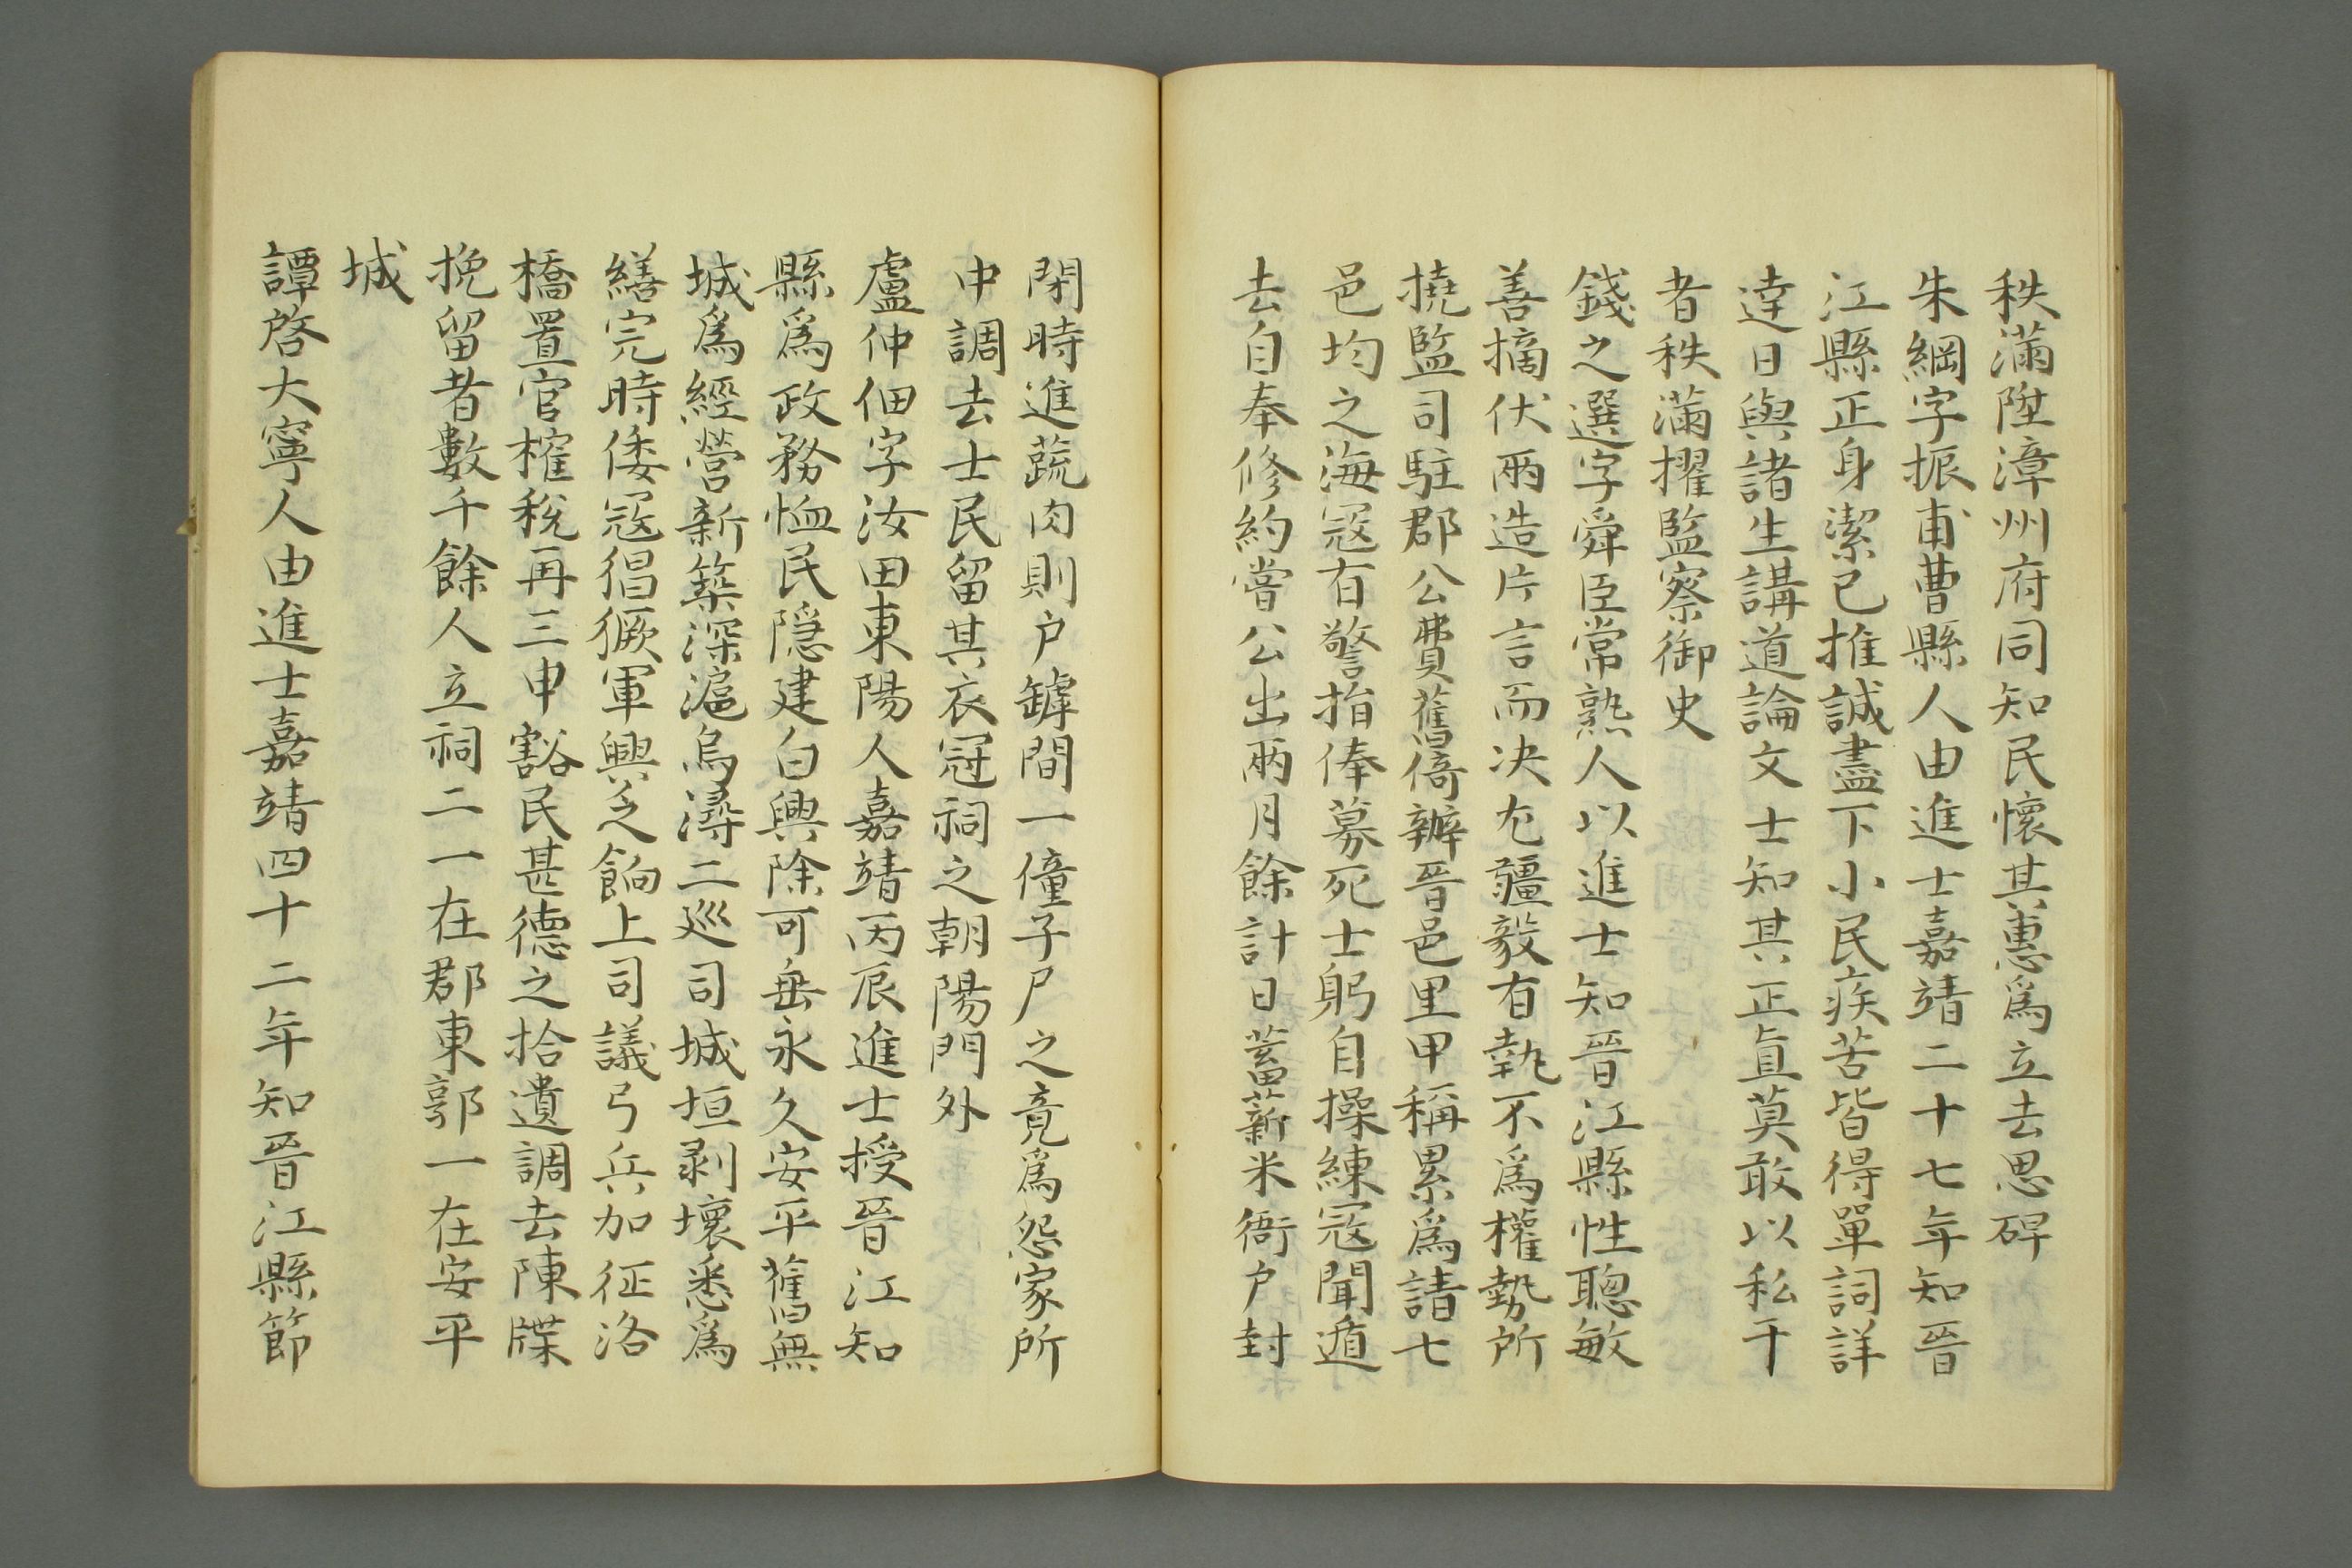 秩滿陞漳州府同知民懷其惠爲立去思碑
朱綱字振甫曹縣人由進士嘉靖二十七年知晉
江縣正身潔己推誠盡下小民疾苦皆得單詞詳
達日與諸生講道論文士知其正直莫敢以私干
者秩滿擢監察御史
錢之選字舜臣常熟人以進士知晉江縣性聰敏
善摘伏兩造片言而决尤彊毅有執不爲權勢所
撓監司駐郡公費舊偹辦晉邑里甲稱累爲請七
邑均之海冦有警指俸募死士躬自操練冦聞遁
去自奉修約嘗公出兩月餘計日蓄薪米衙户封
閉時進蔬肉則户罅間一僮子尸之竟爲怨家所
中調去士民留其衣冠祠之朝陽門外
盧仲佃字汝田東陽人嘉靖丙辰進士授晉江知
縣爲政務恤民隱建白興除可垂永久安平舊無
城爲經營新築深滬烏潯二巡司城垣剥壞悉爲
繕完時倭冦猖獗軍興乏餉上司議弓兵加征洛
橋置官榷税再三申豁民甚德之拾遺調去陳牒
挽留者數千餘人立祠二一在郡東郭一在安平
城
譚啓大寧人由進士嘉靖四十二年知晉江縣節